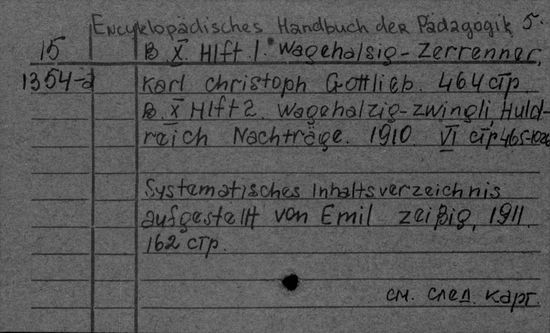 Encyklopädisches Handbuch der Pädagogik 5.
15 B. X. Hlft. 1. Wagehalsig-Zerrenner,
1354-а Karl Christoph Gottlieb. 464 стр.
B. X Hlft 2. Wagehalzig-Zwingli, Huld-
reich Nachträge. 1910. VI стр 465-1026
Systematisches Inhaltsverzeichnis
aufgestellt von Emil Zeißig, 1911.
162 стр.
см. след. карт.